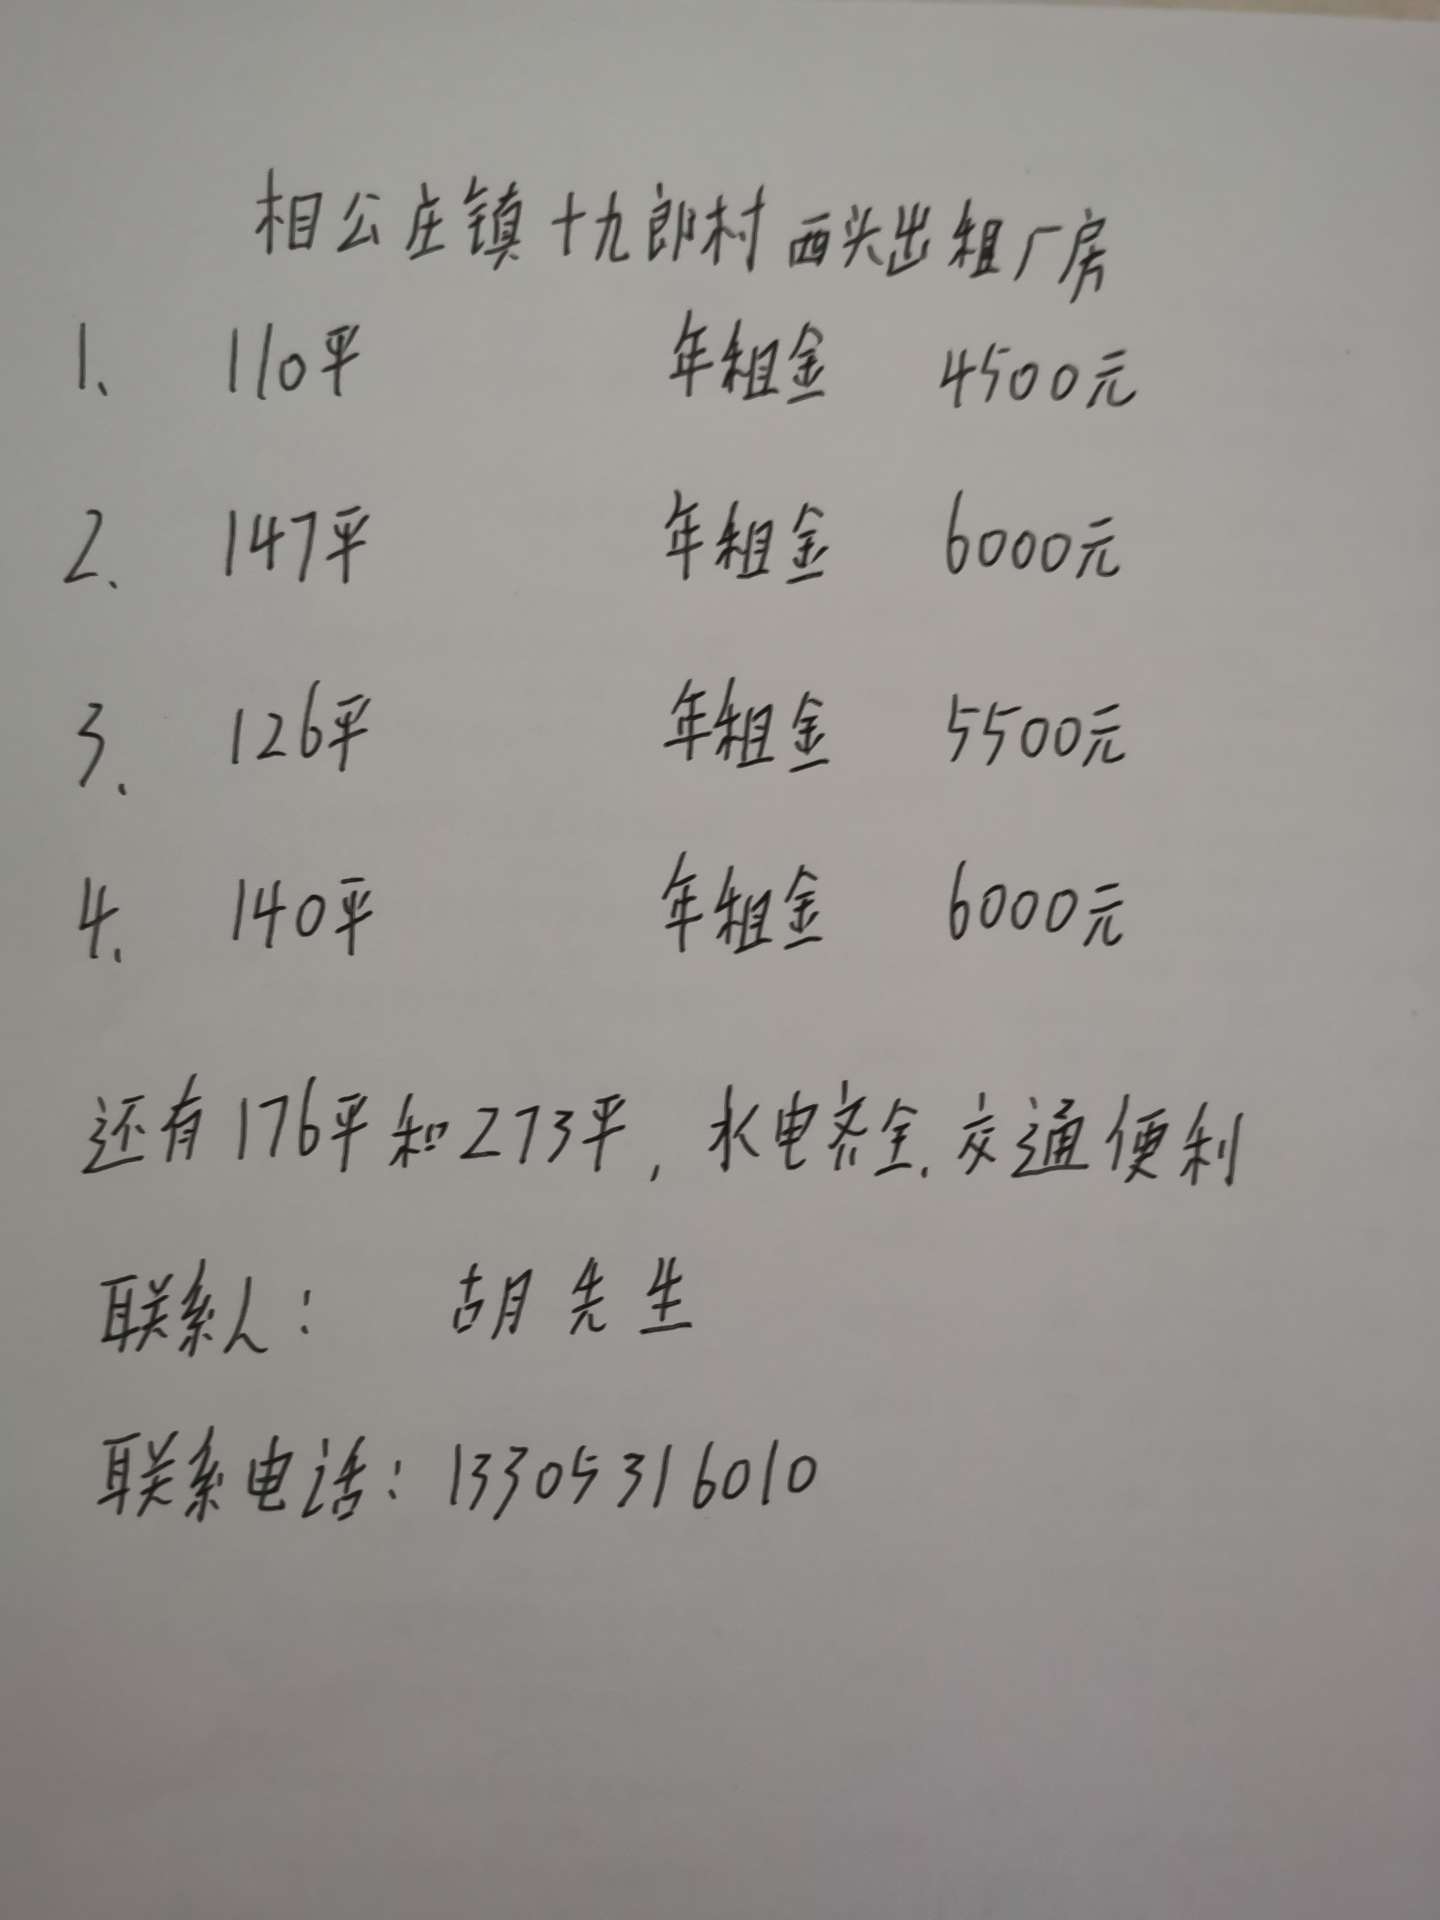 相公庄镇十九郎村西头出租厂房
1、 110平 年租金 4500元
2、 147平 年租金 6000元
3、 126平 年租金 5500元
4、 140平 年租金 6000元
还有176平和273平，水电齐全、交通便利
联系人： 胡先生
联系电话：13305316010